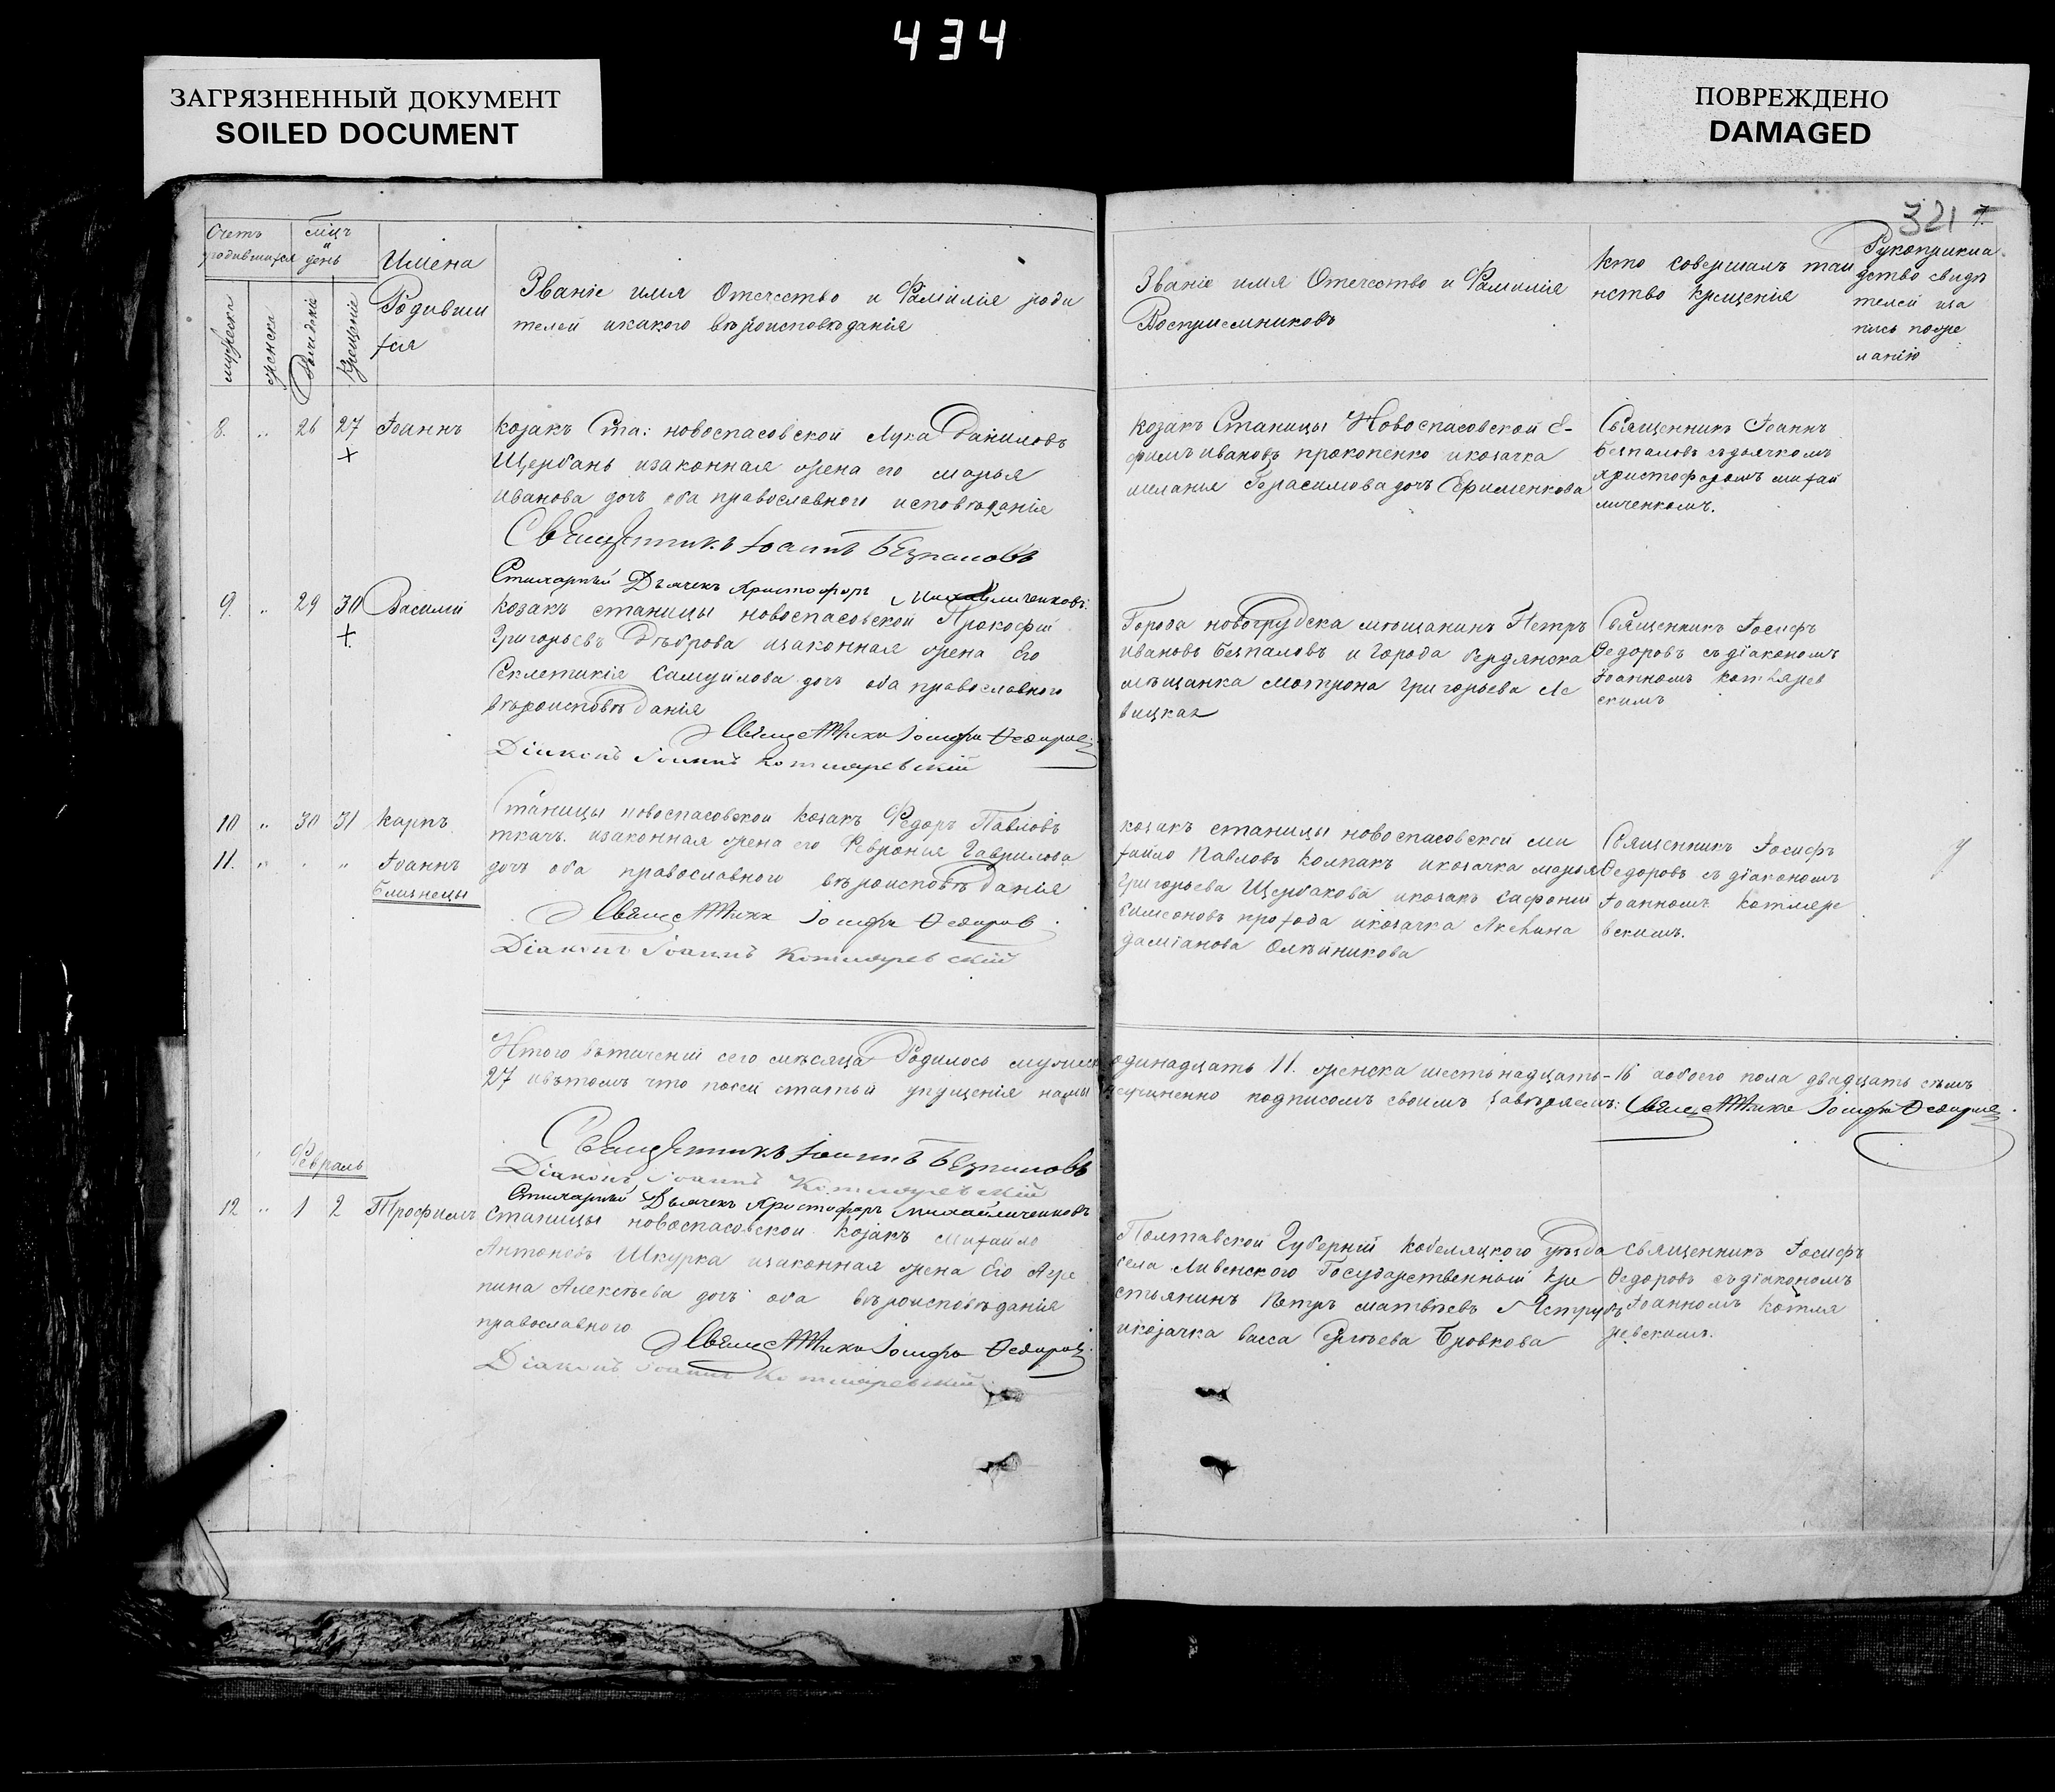 434
ЗАГРЯЗНЕННЫЙ ДОКУМЕНТ
SOILED DOCUMENT
ПОВРЕЖДЕНО
DAMAGED
321 7.
Счетъ родившихся
мѣцъ и день
Имена
Родивши
хся
мужеска
женска
Рожденіе
Крещеніе
Званіе имя Отечество и Фамилія роди
телей икакого вѣроисповѣданія
Званіе имя Отечество и Фамилія
Восприемниковъ
Кто совершалъ таи
нство крещенія
Рукоприкла
дство свидѣ
телей иза
пись по же
ланію
8. " 26 27 Іоаннъ
+
козакъ Ста: новоспасовской Лука Даниловъ
Щербань изаконная жена его марья
иванова дочь оба православного исповѣданія
Священникъ Іоаннъ Безпаловъ
Стихарный Дьячекъ Христофоръ Михайличенковъ.
козакъ Станицы Новоспасовской е-
фимъ ивановъ прокопенко икозачка
мелания Герасимова дочь Ефименкова
Священникъ Іоаннъ
Безпаловъ съдьячкомъ
христофоромъ михай
личенкомъ.
9. " 29 30 Василій
+
козакъ станицы новоспасовской Прокофій
Григорьевъ Дѣброва изаконная жена Его
Секлетикія Самуилова дочь оба православного
вѣроисповѣданія
Священникъ Іосифъ Ѳедоровъ
Діаконъ Іоаннъ Котляревскій
Города новогрудска мѣщанинъ Петръ
ивановъ Безпаловъ и города бердянска
мѣщанка мотрона григорьева Ле
вицкая
Священникъ Іосифъ
Ѳедоровъ съдіакономъ
Іоанномъ котлярев
скимъ
10 " 30 31 Карпъ
11. " " " Іоаннъ
Близнецы
Станицы новоспасовской козакъ Федоръ Павловъ
ткачъ. изаконная жена его Февронія Гаврилова
дочь оба православного вѣроисповѣданія
Священникъ Іосифъ Ѳедоровъ
Діаконъ Іоаннъ Котляревскій
козакъ станицы новоспасовской ми
хайло Павловъ Колпакъ икозачка марья
Григорьева Щербакова икозакъ Сафоній
Симеоновъ прохода икозачка Аксенина
даміанова Олѣйникова
Священникъ Іосифъ
Ѳедоровъ съ діакономъ
Іоанномъ Котляре
вскимъ.
Итого вътеченіи сего мѣсяца Родилось мужеска одинадцать 11. женска шестьнадцать-16 аобоего пола двадцать семь
27 ивътомъ что посей статьи упущенія нами неучиненно подписомъ своимъ завѣряемъ: Священникъ Іосифъ Ѳедоровъ
Священникъ Іоаннъ Безпаловъ
Діаконъ Іоаннъ Котляревскій
Стихарный Дьячекъ Христофоръ Михайличенковъ
Февраль
12 " 1 2 Трофимъ
станицы новоспасовской козакъ михаило
Антоновъ Шкурка изаконная жена Его Агре
пина Алексѣева дочь оба вѣроисповѣданія
православного
Священникъ Іосифъ Ѳедоровъ
Діаконъ Іоаннъ Котляревскій
Полтавской Губерній кобеляцкого уѣзда
села Ливенского Государственный кре
стьянинъ Петръ матвѣевъ Яструбъ
икозачка васса Сергѣева Бровкова
священникъ Іосифъ
Ѳедоровъ съдіакономъ
Іоанномъ котля
ревскимъ.